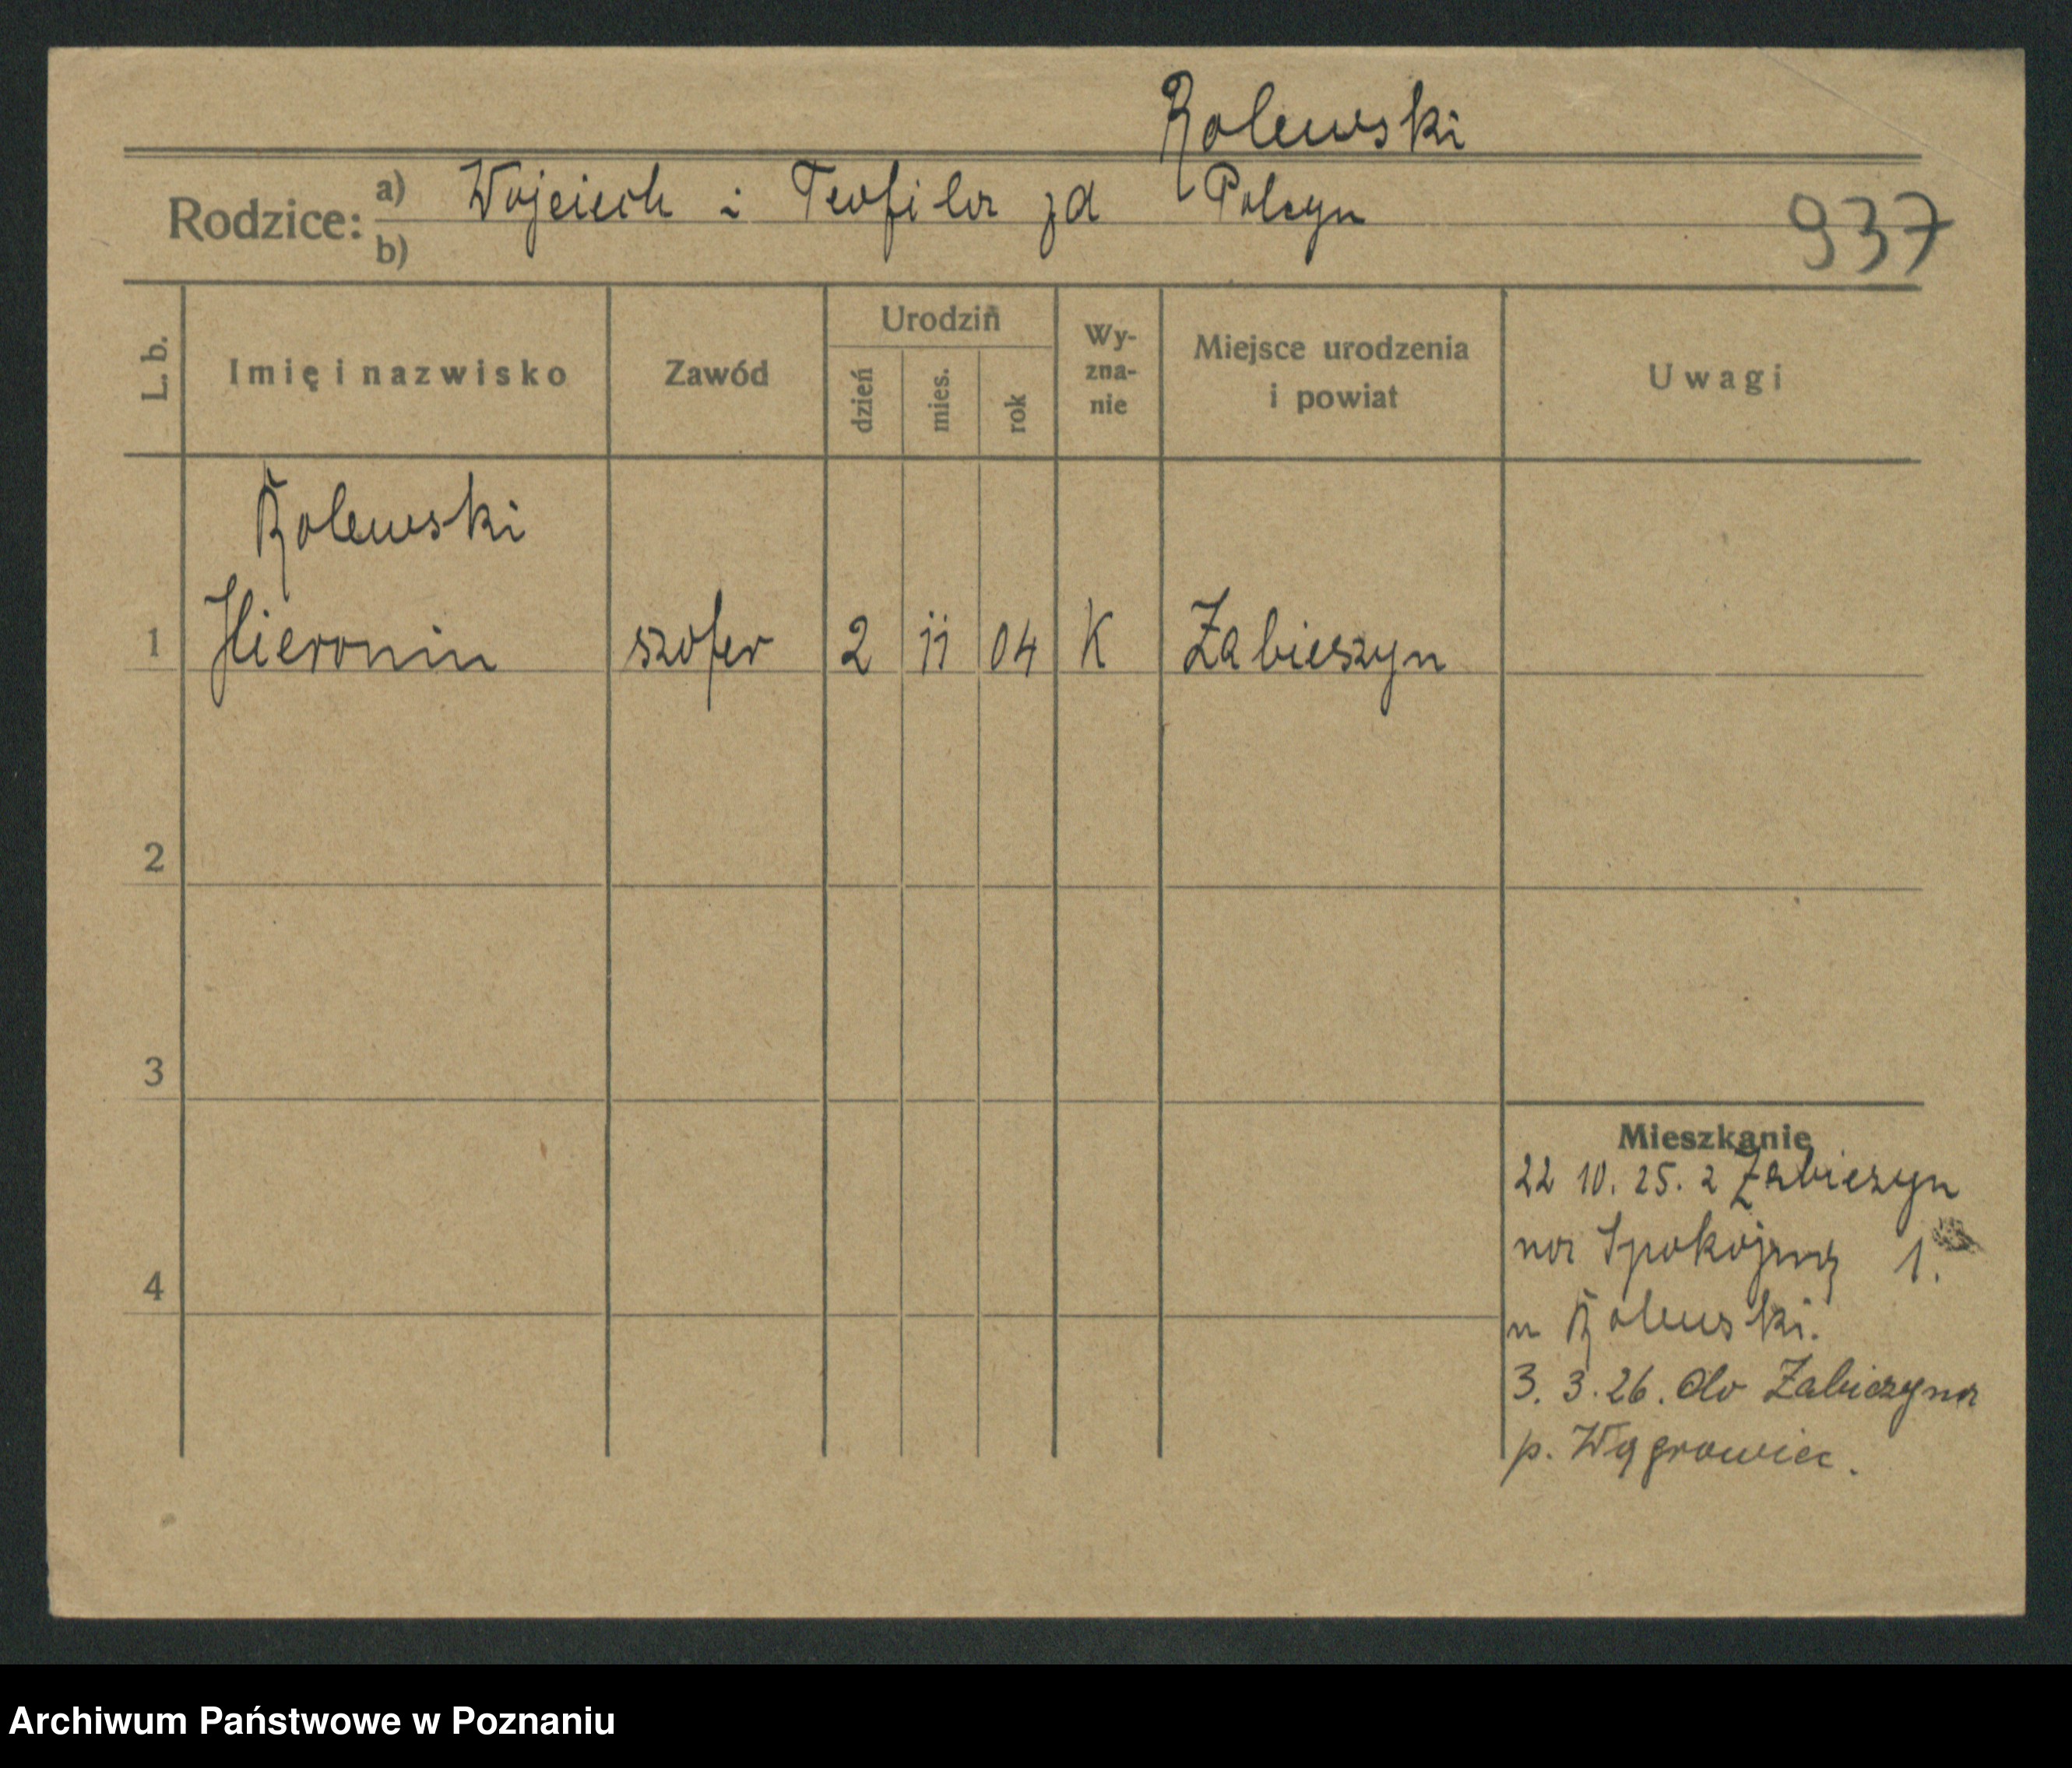 Rolewski
Rodzice: a) Wojciech i Teofila zd Polcyn
b)
937
L. b. Imię i nazwisko Zawód Urodzin dzień mies. rok Wyznanie Miejsce urodzenia i powiat Uwagi
Rolewski
1 Hieronim szofer 2 11 04 K Żabieszyn
2
3
4
Mieszkanie
22 10. 25. z Żabiczyn
na Spokojną 1.
u Rolewski.
3. 3. 26. do Żabiczyna
p. Wągrowiec.
Archiwum Państwowe w Poznaniu